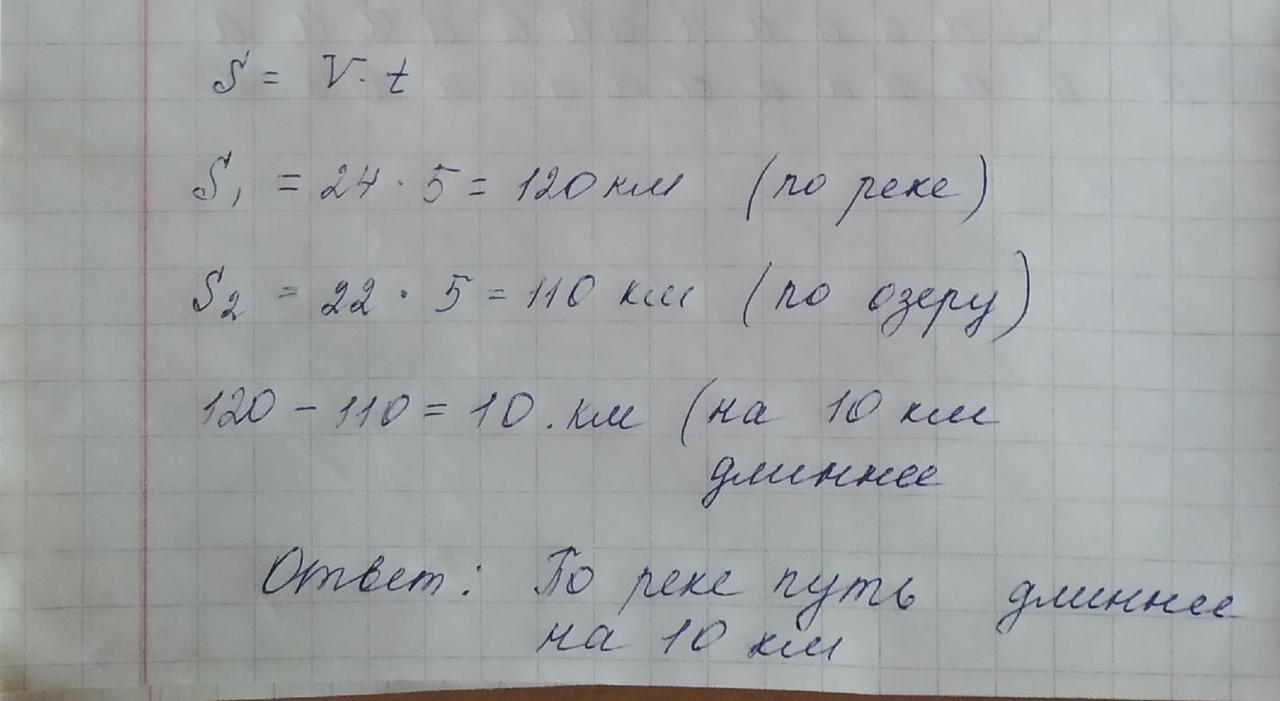 S = V · t
S₁ = 24 · 5 = 120 км (по реке)
S₂ = 22 · 5 = 110 км (по озеру)
120 - 110 = 10 . км (на 10 км
длиннее
Ответ: По реке путь длиннее
на 10 км